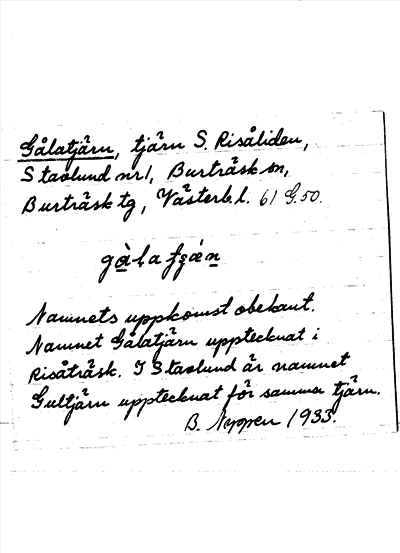 Gålatjärn, tjärn S. Risåliden,
Stavlund nr 1, Burträsk sn,
Burträsk tg, Västerb. l. 61 G. 50.
Namnets uppkomst obekant.
Namnet Gålatjärn upptecknat i
Risåträsk. I Stavlund är namnet
Gultjärn upptecknat för samma tjärn.
B. Nyppen 1933.